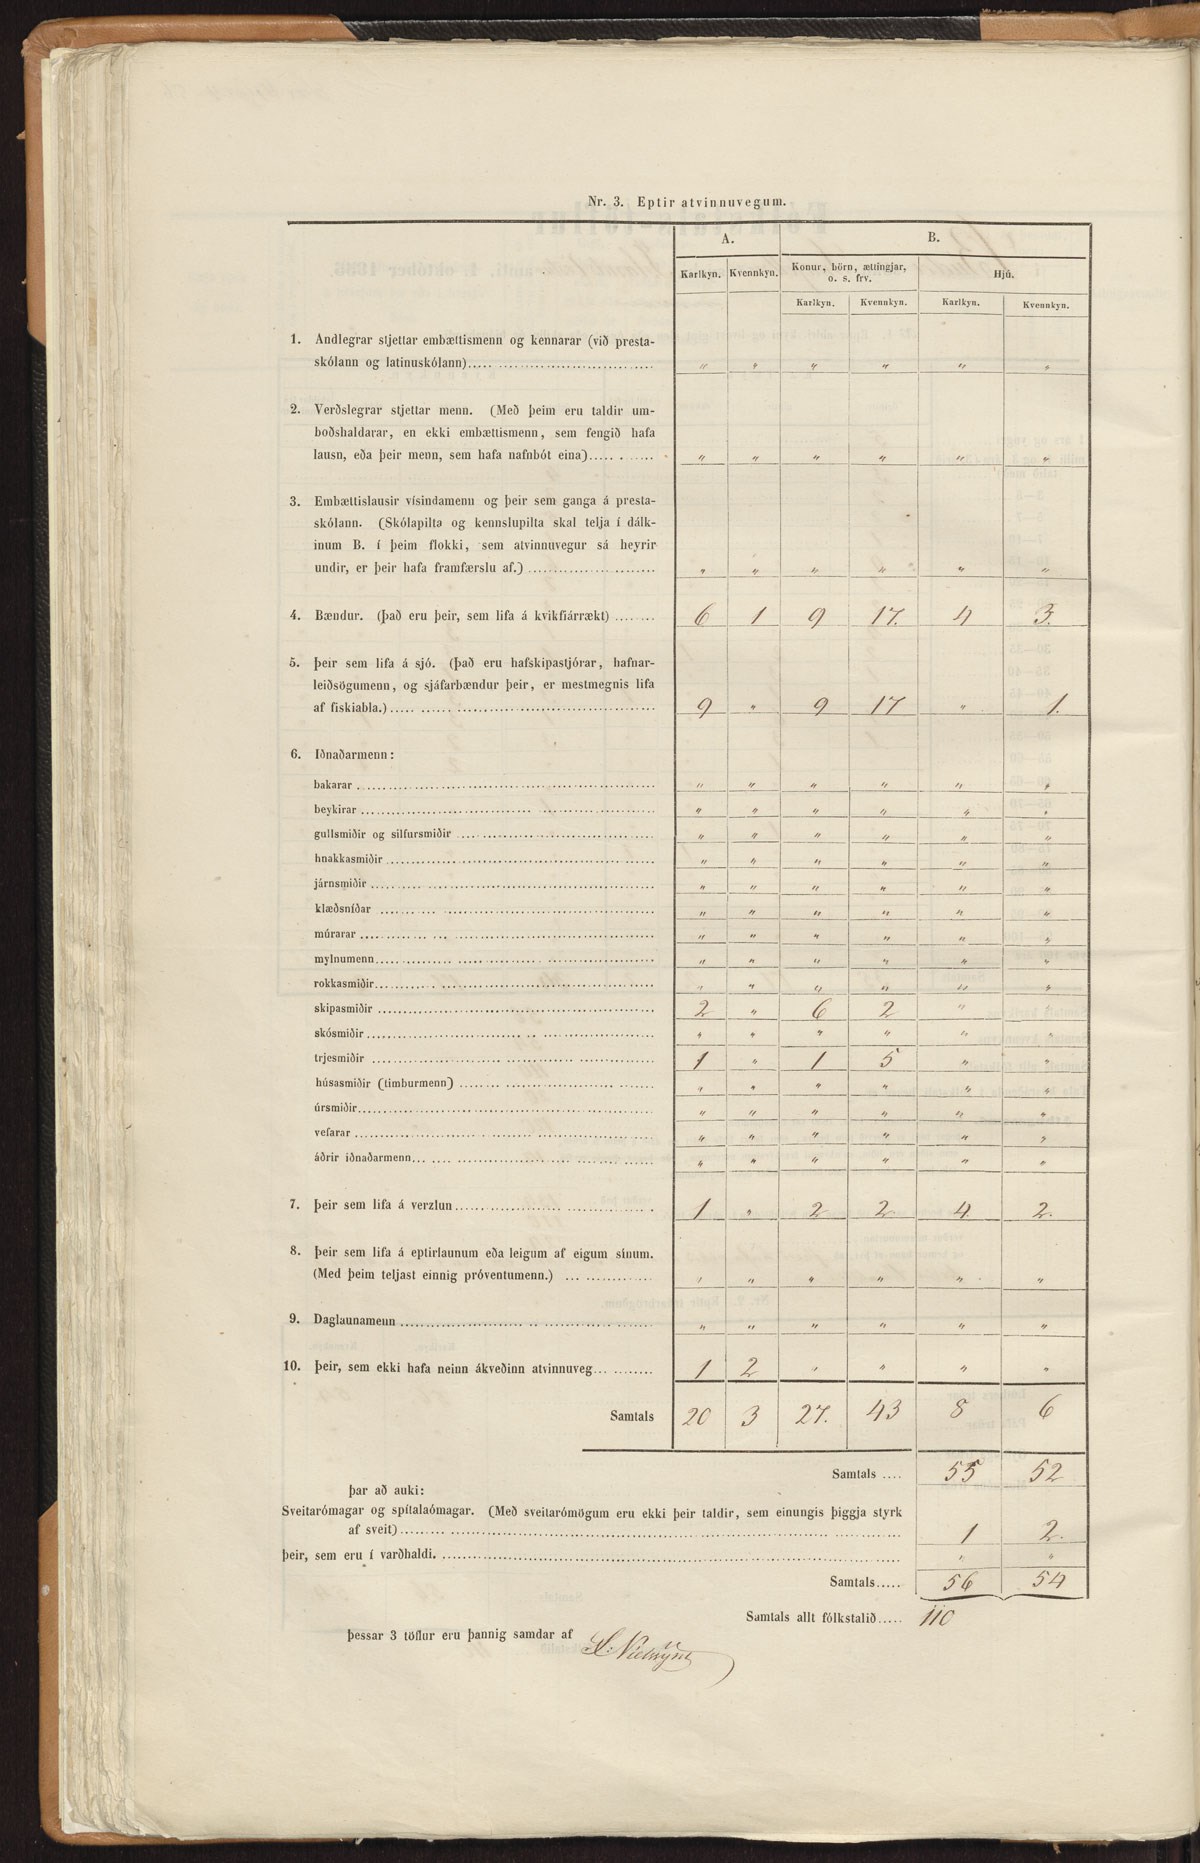 Nr. 3. Eptir atvinnuvegum.
A. B.
Karlkyn. Kvennkyn. Konur, börn, ættingjar, o. s. frv. Hjú.
Karlkyn. Kvennkyn. Karlkyn. Kvennkyn.
1. Andlegrar stjettar embættismenn og kennarar (við presta-
skólann og latinuskólann) „ „ „ „ „ „
2. Verðslegrar stjettar menn. (Með þeim eru taldir um-
boðshaldarar, en ekki embættismenn, sem fengið hafa
lausn, eða þeir menn, sem hafa nafnbót eina) „ „ „ „ „ „
3. Embættislausir vísindamenn og þeir sem ganga á presta-
skólann. (Skólapilta og kennslupilta skal telja í dálk-
inum B. í þeim flokki, sem atvinnuvegur sá heyrir
undir, er þeir hafa framfærslu af.) „ „ „ „ „ „
4. Bændur. (Það eru þeir, sem lifa á kvikfjárrækt) 6 1 9 17. 4 3.
5. Þeir sem lifa á sjó. (Það eru hafskipastjórar, hafnar-
leiðsögumenn, og sjáfarbændur þeir, er mestmegnis lifa
af fiskiabla.) 9 „ 9 17 „ 1.
6. Iðnaðarmenn:
bakarar „ „ „ „ „ „
beykirar „ „ „ „ „ „
gullsmiðir og silfursmiðir „ „ „ „ „ „
hnakkasmiðir „ „ „ „ „ „
járnsmiðir „ „ „ „ „ „
klæðsníðar „ „ „ „ „ „
múrarar „ „ „ „ „ „
mylnumenn „ „ „ „ „ „
rokkasmiðir „ „ „ „ „ „
skipasmiðir 2 „ 6 2 „ „
skósmiðir „ „ „ „ „ „
trjesmiðir 1 „ 1 5 „ „
húsasmiðir (timburmenn) „ „ „ „ „ „
úrsmiðir „ „ „ „ „ „
vefarar „ „ „ „ „ „
áðrir iðnaðarmenn „ „ „ „ „ „
7. Þeir sem lifa á verzlun 1 „ 2 2 4 2.
8. Þeir sem lifa á eptirlaunum eða leigum af eigum sínum.
(Með þeim teljast einnig próventumenn.) „ „ „ „ „ „
9. Daglaunamenn „ „ „ „ „ „
10. Þeir, sem ekki hafa neinn ákveðinn atvinnuveg 1 2 „ „ „ „
Samtals 20 3 27. 43 8 6
Samtals 55 52
Þar að auki:
Sveitarómagar og spítalaómagar. (Með sveitarómögum eru ekki þeir taldir, sem einungis þiggja styrk
af sveit) 1 2.
Þeir, sem eru í varðhaldi. „ „
Samtals 56 54
Samtals allt fólkstalið 110
Þessar 3 töflur eru þannig samdar af